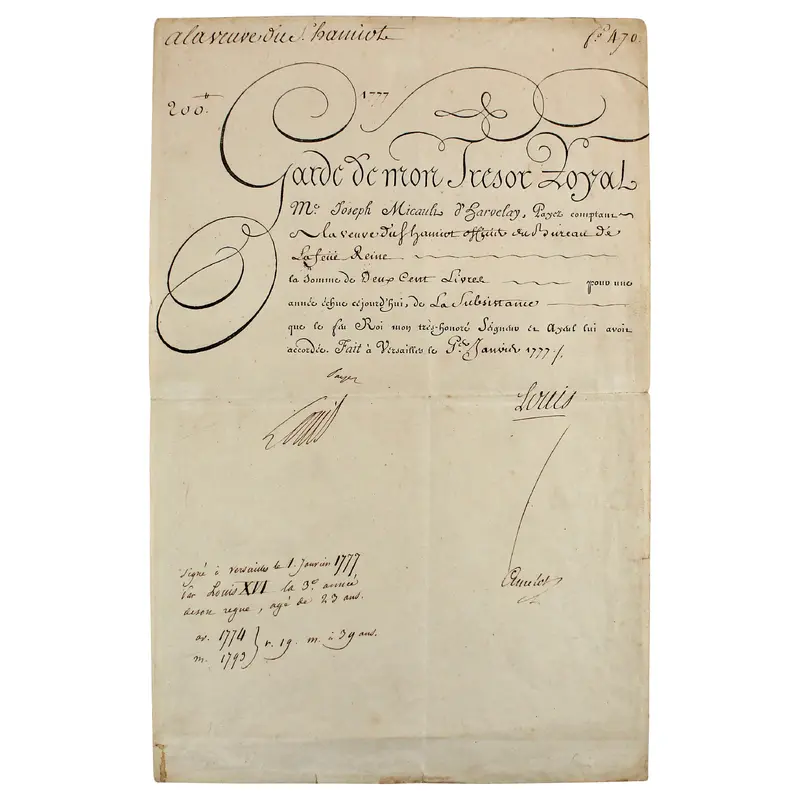 a la veuve du Sr. hamiot
fo. 470.
200.ᵗᵗ
1777
Garde de mon Tresor Royal
Me. Joseph Micault d'Harvelay, Payez comptant
a la veuve du Sr hamiot officier du Bureau de
La feüe Reine
la somme de Deux Cent Livres pour une
année échue cejourd'hui, de La Subsistance
que le feu Roi mon très-honoré Seigneur et Ayeul lui avoit
accordée. Fait à Versailles le Per. Janvier 1777 ./.
Payez
Louis
Louis
Amelot
signé à Versailles le 1. Janvier 1777
Par Louis XVI la 3e. année
de son regne, agé de 23 ans.
av. 1774
m. 1793 } r. 19. m. à 39 ans.